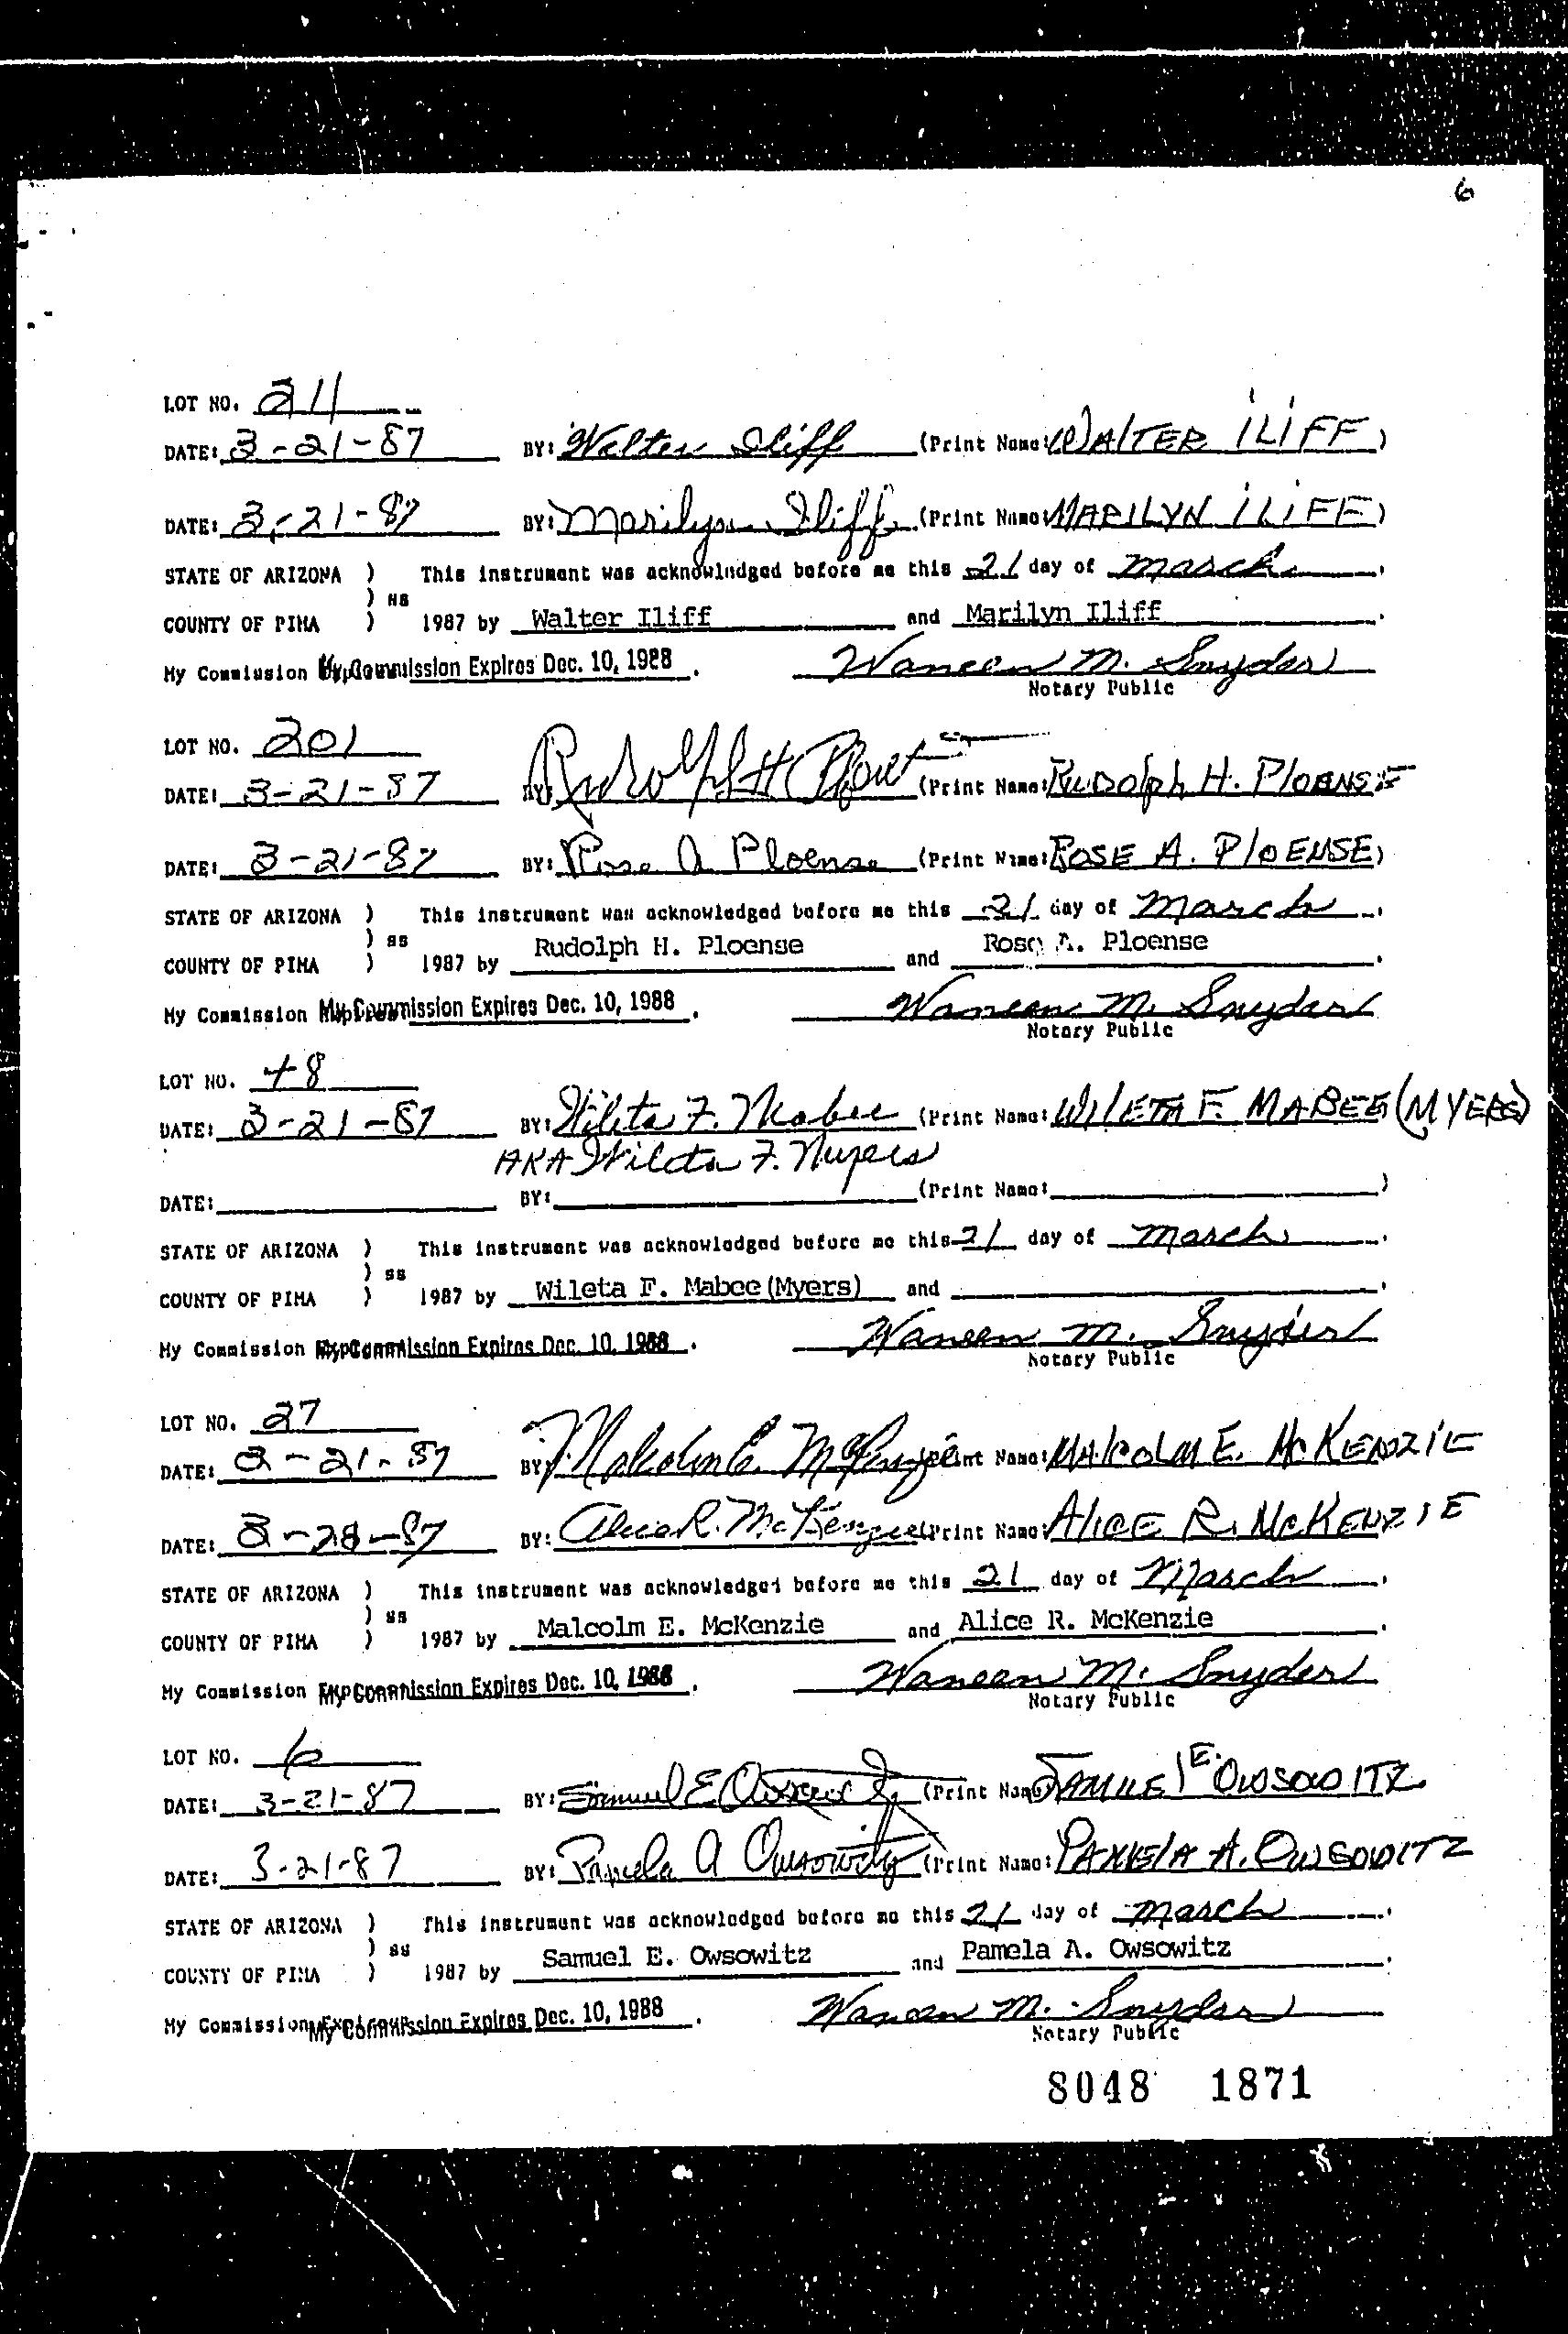 6
LOT NO. 211
DATE: 3-21-87 BY: Walter Iliff (Print Name: WALTER ILIFF)
DATE: 3-21-87 BY: Marilyn Iliff (Print Name: MARILYN ILIFF)
STATE OF ARIZONA ) This instrument was acknowledged before me this 21 day of March,
) ss
COUNTY OF PIMA ) 1987 by Walter Iliff and Marilyn Iliff.
My Commission My Commission Expires Dec. 10, 1988. Waneen M. Snyder
Notary Public
LOT NO. 201
DATE: 3-21-87 BY: Rudolph H Ploense (Print Name: RUDOLPH H. PLOENSE
DATE: 3-21-87 BY: Rose A Ploense (Print Name: ROSE A. PLOENSE)
STATE OF ARIZONA ) This instrument was acknowledged before me this 21 day of March,
) ss
COUNTY OF PIMA ) 1987 by Rudolph H. Ploense and Rose A. Ploense.
My Commission My Commission Expires Dec. 10, 1988. Waneen M. Snyder
Notary Public
LOT NO. 48
DATE: 3-21-87 BY: Wileta F. Mabee (Print Name: WILETA F. MABEE (MYERS)
AKA Wileta F. Myers
DATE: BY: (Print Name: )
STATE OF ARIZONA ) This instrument was acknowledged before me this 21 day of March,
) ss
COUNTY OF PIMA ) 1987 by Wileta F. Mabee (Myers) and .
My Commission My Commission Expires Dec. 10, 1988. Waneen M. Snyder
Notary Public
LOT NO. 27
DATE: 3-21-87 BY: Malcolm E. McKenzie Print Name: MALCOLM E. McKENZIE
DATE: 3-28-87 BY: Alice R. McKenzie Print Name: ALICE R. McKENZIE
STATE OF ARIZONA ) This instrument was acknowledged before me this 21 day of March,
) ss
COUNTY OF PIMA ) 1987 by Malcolm E. McKenzie and Alice R. McKenzie.
My Commission My Commission Expires Dec. 10, 1988. Waneen M. Snyder
Notary Public
LOT NO. 6
DATE: 3-21-87 BY: Samuel E (Print Name SAMUEL E. OWSOWITZ
DATE: 3-21-87 BY: Pamela A Owsowitz (Print Name: PAMELA A. OWSOWITZ
STATE OF ARIZONA ) This instrument was acknowledged before me this 21 day of March,
) ss
COUNTY OF PIMA ) 1987 by Samuel E. Owsowitz and Pamela A. Owsowitz.
My Commission My Commission Expires Dec. 10, 1988. Waneen M. Snyder
Notary Public
8048 1871